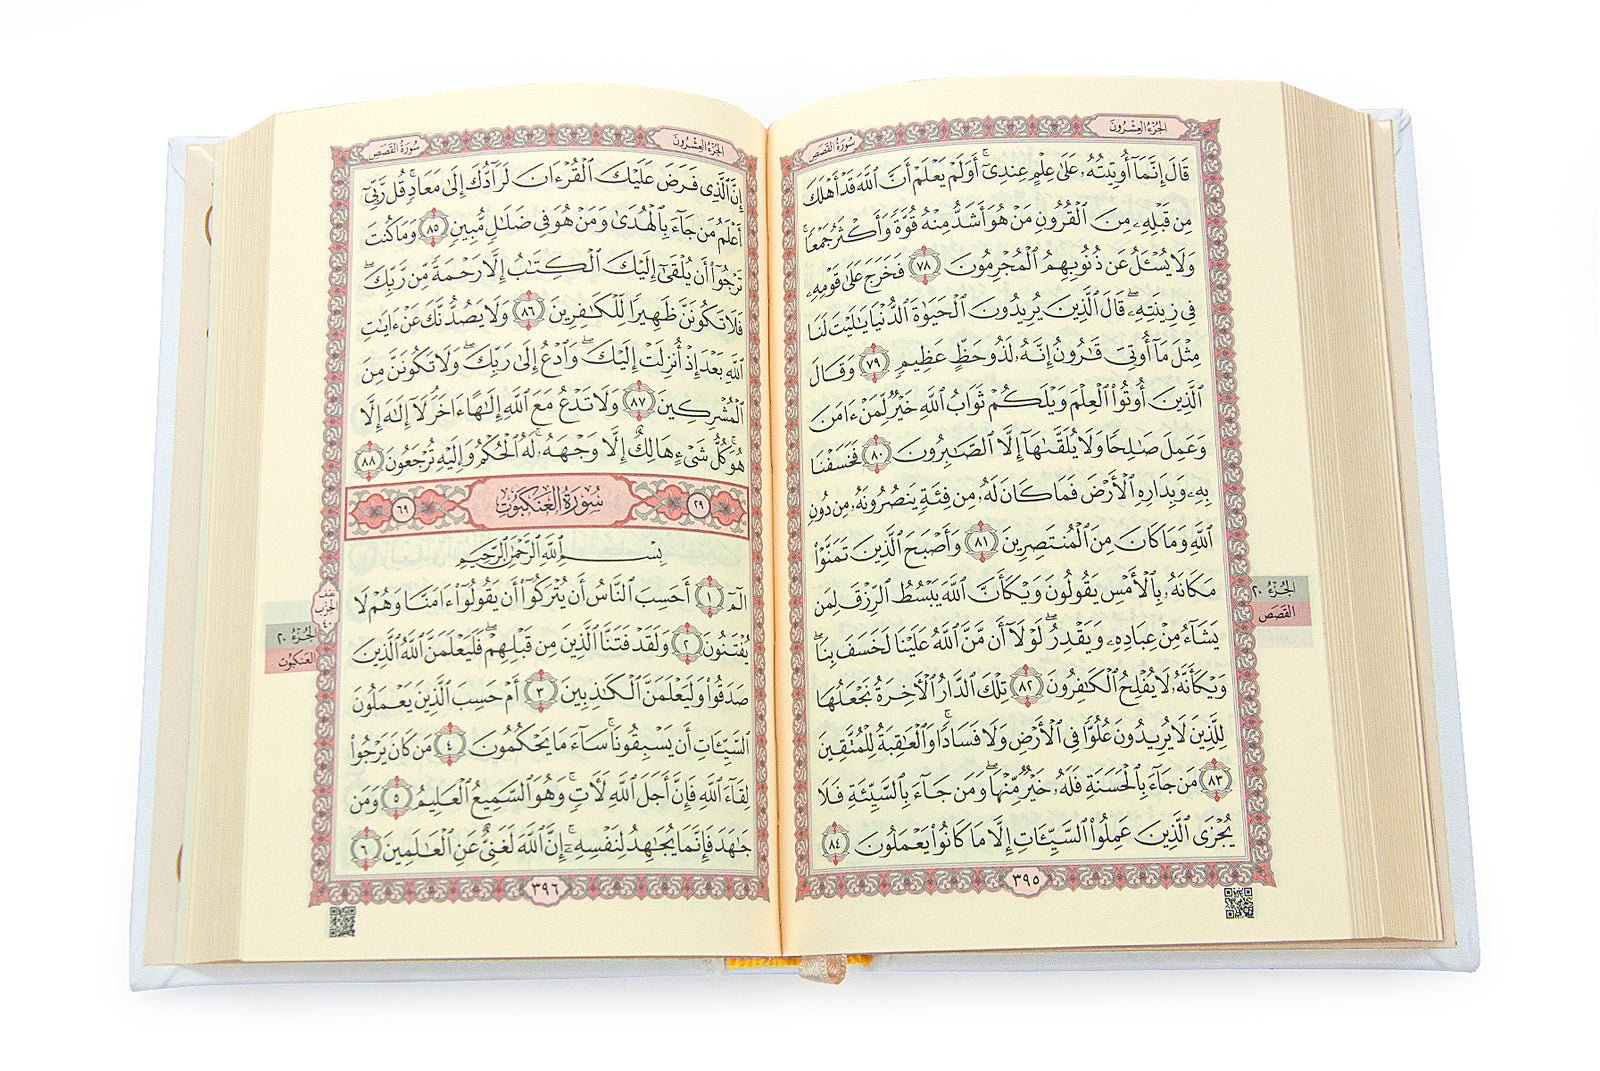 الجزء العشرون
سورة القصص
قَالَ إِنَّمَآ أُوتِيتُهُۥ عَلَىٰ عِلْمٍ عِندِىٓ ۚ أَوَلَمْ يَعْلَمْ أَنَّ ٱللَّهَ قَدْ أَهْلَكَ
مِن قَبْلِهِۦ مِنَ ٱلْقُرُونِ مَنْ هُوَ أَشَدُّ مِنْهُ قُوَّةً وَأَكْثَرُ جَمْعًا ۚ
وَلَا يُسْـَٔلُ عَن ذُنُوبِهِمُ ٱلْمُجْرِمُونَ ٧٨ فَخَرَجَ عَلَىٰ قَوْمِهِۦ
فِى زِينَتِهِۦ ۖ قَالَ ٱلَّذِينَ يُرِيدُونَ ٱلْحَيَوٰةَ ٱلدُّنْيَا يَـٰلَيْتَ لَنَا
مِثْلَ مَآ أُوتِىَ قَـٰرُونُ إِنَّهُۥ لَذُو حَظٍّ عَظِيمٍ ٧٩ وَقَالَ
ٱلَّذِينَ أُوتُوا۟ ٱلْعِلْمَ وَيْلَكُمْ ثَوَابُ ٱللَّهِ خَيْرٌ لِّمَنْ ءَامَنَ
وَعَمِلَ صَـٰلِحًا وَلَا يُلَقَّىٰهَآ إِلَّا ٱلصَّـٰبِرُونَ ٨٠ فَخَسَفْنَا
بِهِۦ وَبِدَارِهِ ٱلْأَرْضَ فَمَا كَانَ لَهُۥ مِن فِئَةٍ يَنصُرُونَهُۥ مِن دُونِ
ٱللَّهِ وَمَا كَانَ مِنَ ٱلْمُنتَصِرِينَ ٨١ وَأَصْبَحَ ٱلَّذِينَ تَمَنَّوْا۟
مَكَانَهُۥ بِٱلْأَمْسِ يَقُولُونَ وَيْكَأَنَّ ٱللَّهَ يَبْسُطُ ٱلرِّزْقَ لِمَن
يَشَآءُ مِنْ عِبَادِهِۦ وَيَقْدِرُ ۖ لَوْلَآ أَن مَّنَّ ٱللَّهُ عَلَيْنَا لَخَسَفَ بِنَا ۖ
وَيْكَأَنَّهُۥ لَا يُفْلِحُ ٱلْكَـٰفِرُونَ ٨٢ تِلْكَ ٱلدَّارُ ٱلْـَٔاخِرَةُ نَجْعَلُهَا
لِلَّذِينَ لَا يُرِيدُونَ عُلُوًّا فِى ٱلْأَرْضِ وَلَا فَسَادًا ۚ وَٱلْعَـٰقِبَةُ لِلْمُتَّقِينَ
٨٣ مَن جَآءَ بِٱلْحَسَنَةِ فَلَهُۥ خَيْرٌ مِّنْهَا ۖ وَمَن جَآءَ بِٱلسَّيِّئَةِ فَلَا
يُجْزَى ٱلَّذِينَ عَمِلُوا۟ ٱلسَّيِّـَٔاتِ إِلَّا مَا كَانُوا۟ يَعْمَلُونَ ٨٤
الجزء ٢٠
القصص
٣٩٥
الجزء العشرون
سورة القصص
إِنَّ ٱلَّذِى فَرَضَ عَلَيْكَ ٱلْقُرْءَانَ لَرَآدُّكَ إِلَىٰ مَعَادٍ ۚ قُل رَّبِّىٓ
أَعْلَمُ مَن جَآءَ بِٱلْهُدَىٰ وَمَنْ هُوَ فِى ضَلَـٰلٍ مُّبِينٍ ٨٥ وَمَا كُنتَ
تَرْجُوٓا۟ أَن يُلْقَىٰٓ إِلَيْكَ ٱلْكِتَـٰبُ إِلَّا رَحْمَةً مِّن رَّبِّكَ ۖ
فَلَا تَكُونَنَّ ظَهِيرًا لِّلْكَـٰفِرِينَ ٨٦ وَلَا يَصُدُّنَّكَ عَنْ ءَايَـٰتِ
ٱللَّهِ بَعْدَ إِذْ أُنزِلَتْ إِلَيْكَ ۖ وَٱدْعُ إِلَىٰ رَبِّكَ ۖ وَلَا تَكُونَنَّ مِنَ
ٱلْمُشْرِكِينَ ٨٧ وَلَا تَدْعُ مَعَ ٱللَّهِ إِلَـٰهًا ءَاخَرَ ۘ لَآ إِلَـٰهَ إِلَّا
هُوَ ۚ كُلُّ شَىْءٍ هَالِكٌ إِلَّا وَجْهَهُۥ ۚ لَهُ ٱلْحُكْمُ وَإِلَيْهِ تُرْجَعُونَ ٨٨
٢٩ سُورَةُ العَنكَبُوت ٦٩
بِسْمِ ٱللَّهِ ٱلرَّحْمَـٰنِ ٱلرَّحِيمِ
الٓمٓ ١ أَحَسِبَ ٱلنَّاسُ أَن يُتْرَكُوٓا۟ أَن يَقُولُوٓا۟ ءَامَنَّا وَهُمْ لَا
يُفْتَنُونَ ٢ وَلَقَدْ فَتَنَّا ٱلَّذِينَ مِن قَبْلِهِمْ ۖ فَلَيَعْلَمَنَّ ٱللَّهُ ٱلَّذِينَ
صَدَقُوا۟ وَلَيَعْلَمَنَّ ٱلْكَـٰذِبِينَ ٣ أَمْ حَسِبَ ٱلَّذِينَ يَعْمَلُونَ
ٱلسَّيِّـَٔاتِ أَن يَسْبِقُونَا ۚ سَآءَ مَا يَحْكُمُونَ ٤ مَن كَانَ يَرْجُوا۟
لِقَآءَ ٱللَّهِ فَإِنَّ أَجَلَ ٱللَّهِ لَـَٔاتٍ ۚ وَهُوَ ٱلسَّمِيعُ ٱلْعَلِيمُ ٥ وَمَن
جَـٰهَدَ فَإِنَّمَا يُجَـٰهِدُ لِنَفْسِهِۦٓ ۚ إِنَّ ٱللَّهَ لَغَنِىٌّ عَنِ ٱلْعَـٰلَمِينَ ٦
نصف
الحزب
٤٠
الجزء ٢٠
العنكبوت
٣٩٦